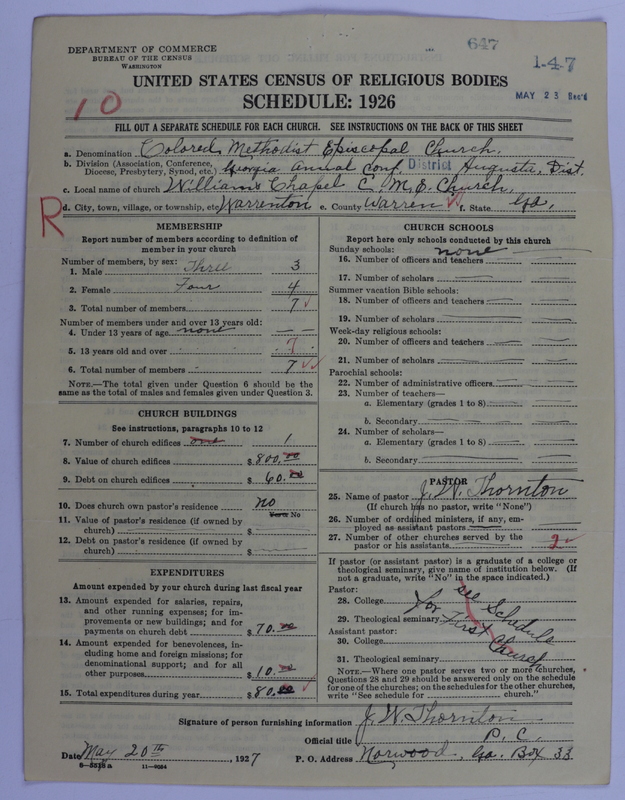 DEPARTMENT OF COMMERCE
BUREAU OF THE CENSUS
WASHINGTON
647
1-4-7
MAY 23 Rec'd
10
UNITED STATES CENSUS OF RELIGIOUS BODIES
SCHEDULE: 1926
FILL OUT A SEPARATE SCHEDULE FOR EACH CHURCH. SEE INSTRUCTIONS ON THE BACK OF THIS SHEET
a. Denomination Colored Methodist Episcopal Church,
b. Division (Association, Conference, Diocese, Presbytery, Synod, etc.) Georgia Annual Conf. District Augusta, Dist.
c. Local name of church Williams Chapel C. M. E. Church,
R
d. City, town, village, or township, etc. Warrenton e. County Warren f. State Ga,
MEMBERSHIP
Report number of members according to definition of
member in your church
Number of members, by sex:
1. Male Three 3
2. Female Four 4
3. Total number of members 7
Number of members under and over 13 years old:
4. Under 13 years of age none
5. 13 years old and over 7
6. Total number of members 7
NOTE.—The total given under Question 6 should be the
same as the total of males and females given under Question 3.
CHURCH BUILDINGS
See instructions, paragraphs 10 to 12
7. Number of church edifices one 1
8. Value of church edifices $ 800.00
9. Debt on church edifices $ 60.00
10. Does church own pastor's residence no
Yes or No
11. Value of pastor's residence (if owned by
church) $
12. Debt on pastor's residence (if owned by
church) $
EXPENDITURES
Amount expended by your church during last fiscal year
13. Amount expended for salaries, repairs,
and other running expenses; for im-
provements or new buildings; and for
payments on church debt $ 70.00
14. Amount expended for benevolences, in-
cluding home and foreign missions; for
denominational support; and for all
other purposes $ 10.00
15. Total expenditures during year $ 80.00
CHURCH SCHOOLS
Report here only schools conducted by this church
Sunday schools: none
16. Number of officers and teachers
17. Number of scholars
Summer vacation Bible schools:
18. Number of officers and teachers
19. Number of scholars
Week-day religious schools:
20. Number of officers and teachers
21. Number of scholars
Parochial schools:
22. Number of administrative officers
23. Number of teachers—
a. Elementary (grades 1 to 8)
b. Secondary
24. Number of scholars—
a. Elementary (grades 1 to 8)
b. Secondary
PASTOR
25. Name of pastor J. W. Thornton
(If church has no pastor, write "None")
26. Number of ordained ministers, if any, em-
ployed as assistant pastors
27. Number of other churches served by the
pastor or his assistants 2
If pastor (or assistant pastor) is a graduate of a college or
theological seminary, give name of institution below. (If
not a graduate, write "No" in the space indicated.)
Pastor:
28. College See Schedule
29. Theological seminary for First Church
Assistant pastor:
30. College
31. Theological seminary
NOTE.—Where one pastor serves two or more churches,
Questions 28 and 29 should be answered only on the schedule
for one of the churches; on the schedules for the other churches,
write "See schedule for church."
Signature of person furnishing information J. W. Thornton
Official title P. C.
Date May 20th, 1927 P. O. Address Norwood, Ga. Box 33.
11—9064